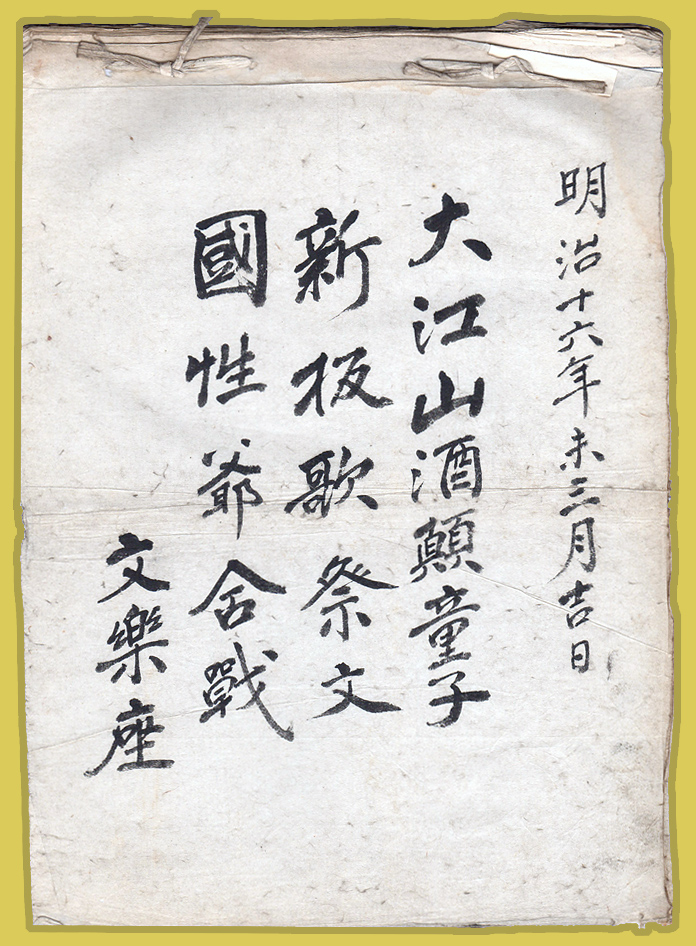 明治十六年未三月吉日
大江山酒顛童子
新板歌祭文
國性爺合戰
文樂座